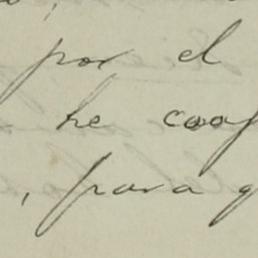 por el
he coaf
, para q